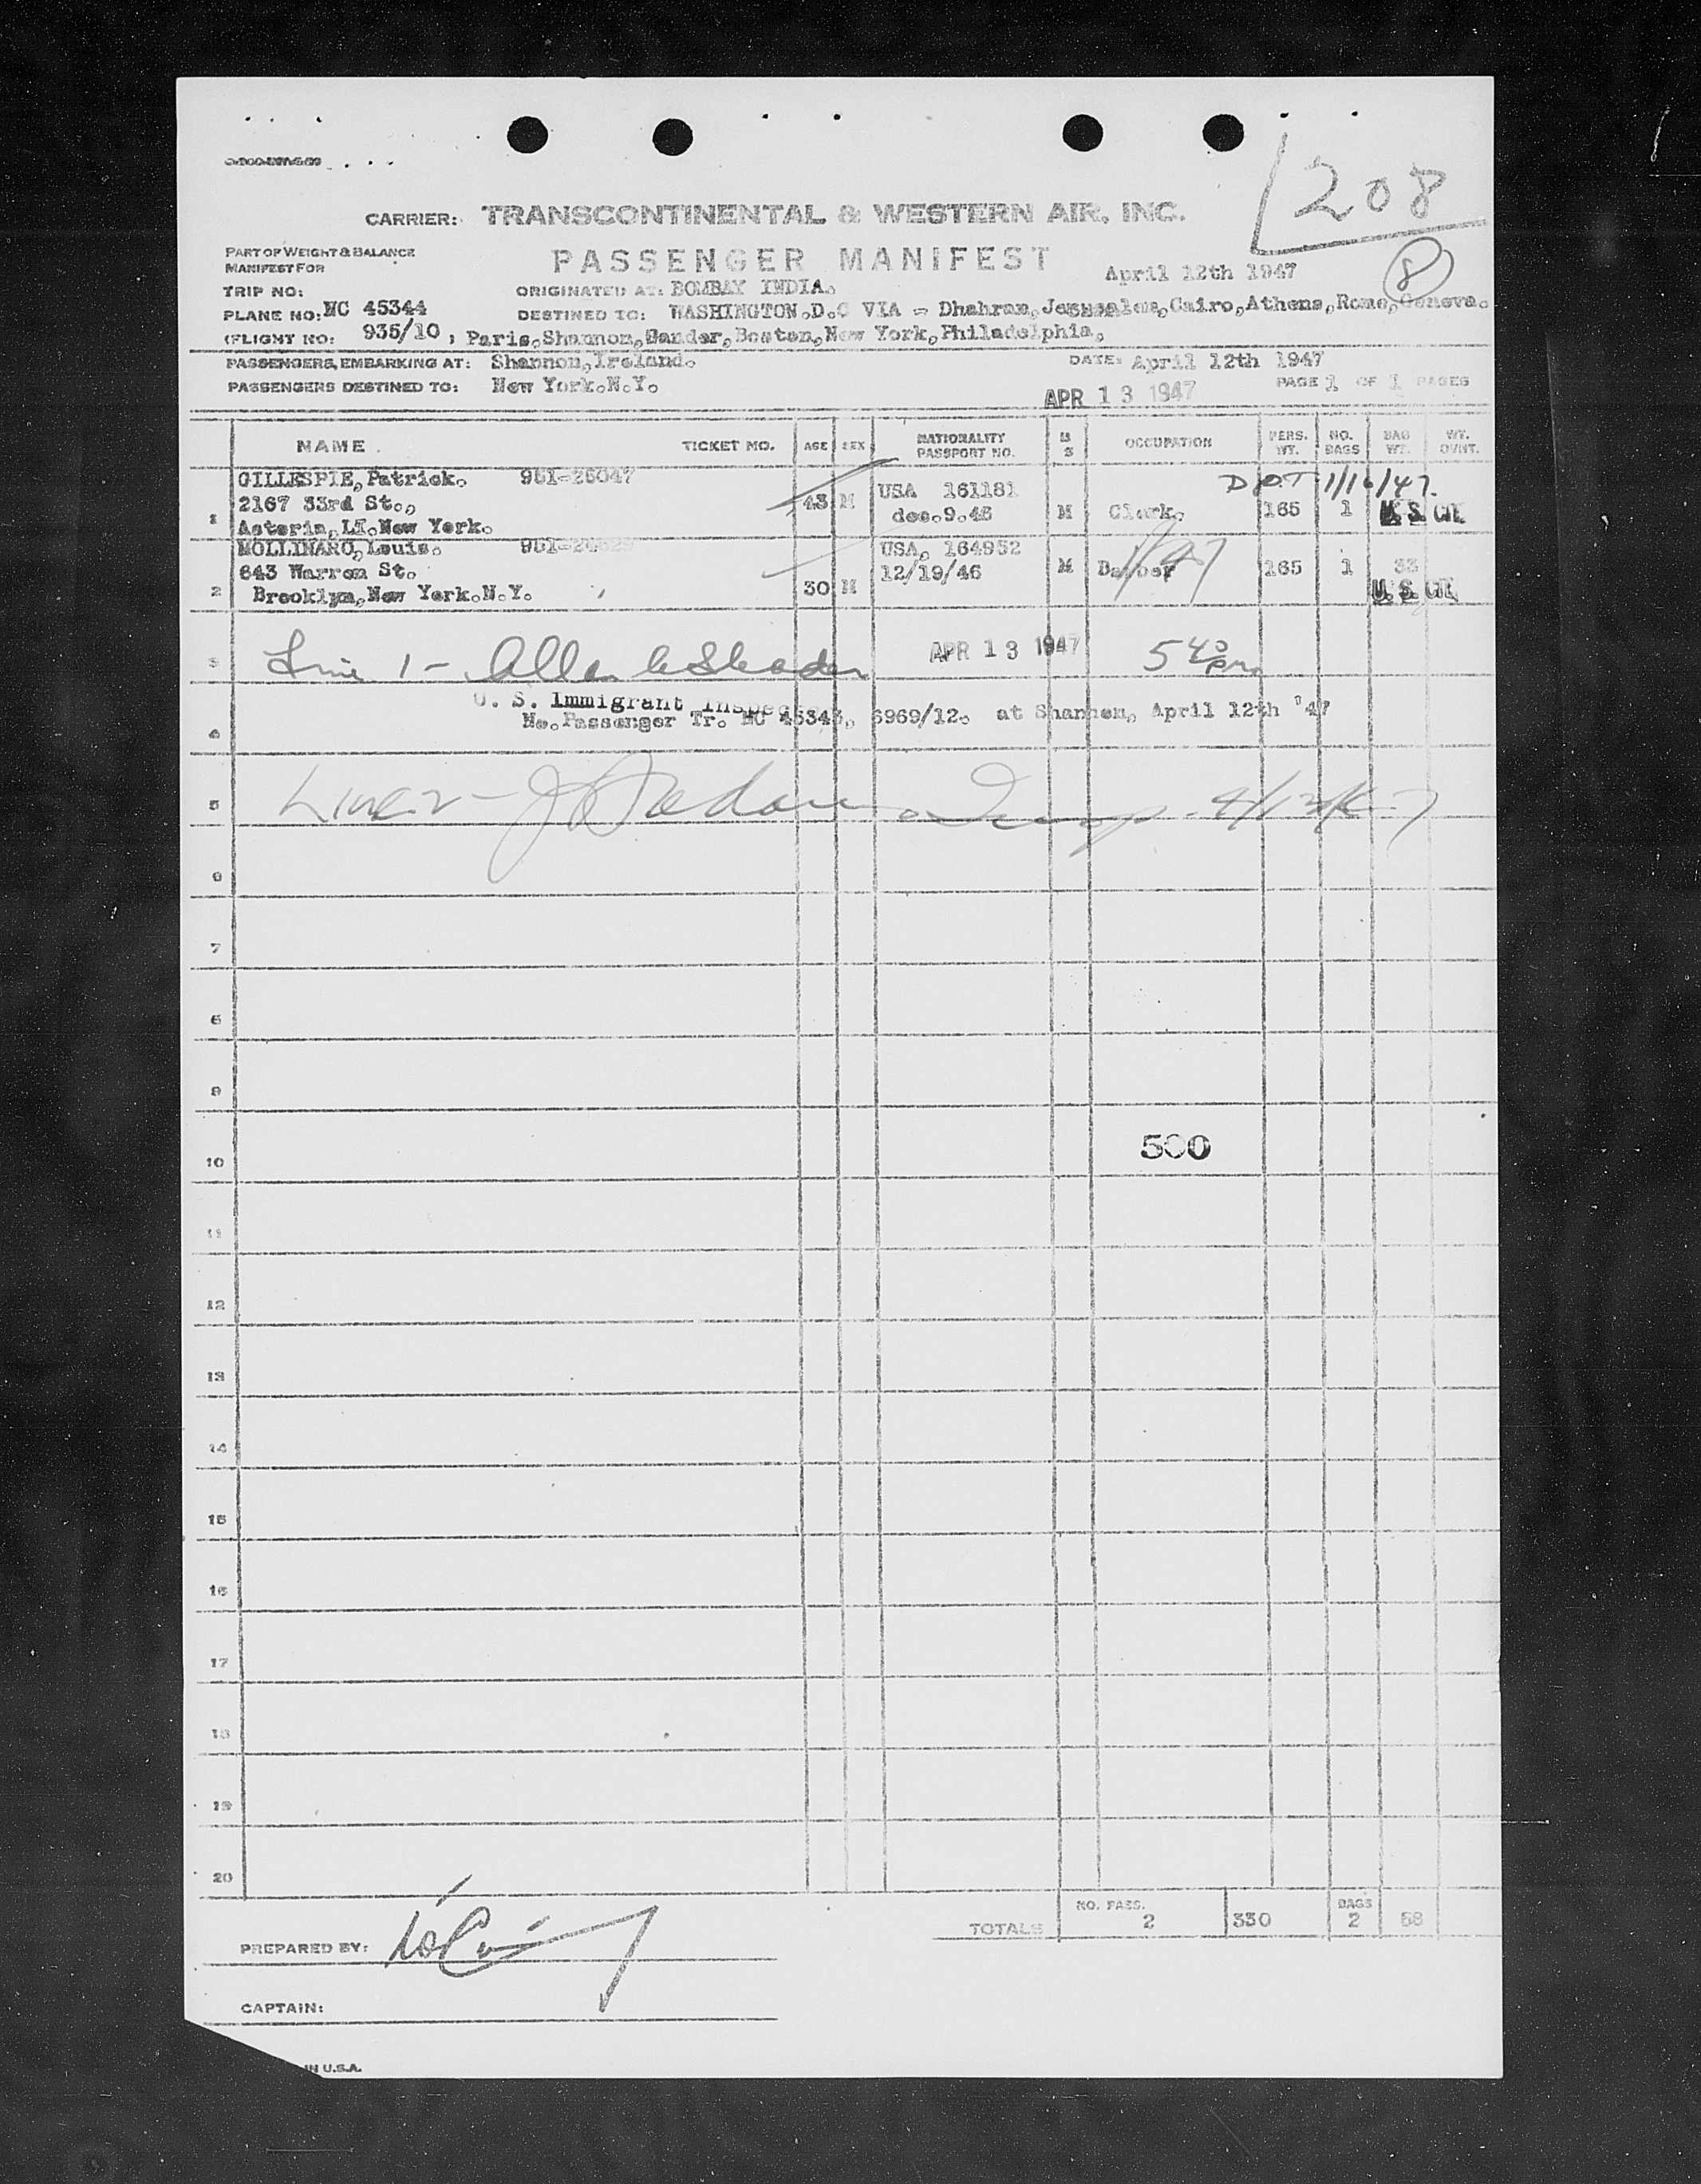 208
CARRIER: TRANSCONTINENTAL & WESTERN AIR, INC.
PART OF WEIGHT & BALANCE
MANIFEST FOR
PASSENGER MANIFEST
April 12th 1947
8
TRIP NO:
ORIGINATED AT: BOMBAY INDIA.
PLANE NO: NC 45344
DESTINED TO: WASHINGTON.D.C VIA - Dhahran, Jerusalem, Cairo, Athens, Rome, Geneva.
FLIGHT NO: 935/10, Paris, Shannon, Gander, Boston, New York, Philadelphia,
PASSENGERS EMBARKING AT: Shannon, Ireland.
DATE: April 12th 1947
PASSENGERS DESTINED TO: New York.N.Y.
APR 13 1947
PAGE 1 OF 1 PAGES
NAME TICKET NO. AGE SEX NATIONALITY PASSPORT NO. M S OCCUPATION PERS. WT. NO. BAGS BAG WT. WT. OVWT.
GILLESPIE, Patrick. 951-25047
DPT 1/16/47.
1 2167 33rd St., 43 M USA 161181 dec.9.46 M Clerk. 165 1 U.S. CIT.
Astoria, LI. New York.
MOLLINARO, Louis. USA, 164952
643 Warren St. 12/19/46 M Barber 1/47 165 1 33
2 Brooklyn, New York.N.Y. 30 M U.S. CIT.
3 Line 1 - APR 13 1947 5 40 pm
U. S. Immigrant Inspector
No. Passenger Tr. NC 45343, 6969/12. at Shannon, April 12th '47
4
5 Line 2 -
6
7
8
9
500
10
11
12
13
14
15
16
17
18
19
20
TOTALS NO. PASS. 2 330 BAGS 2 58
PREPARED BY:
CAPTAIN:
IN U.S.A.